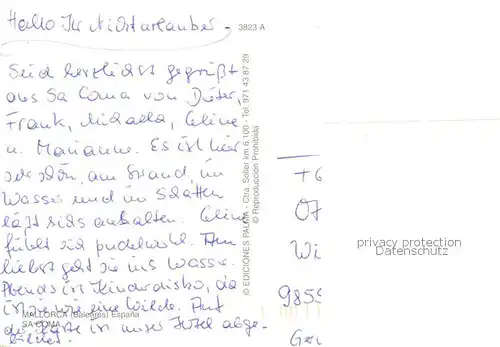 Hallo Ihr Nichturlauber -
3823 A
Seid herzlichst gegrüßt
aus Sa Coma von Dieter,
Frank, Michaela, Celine
u. Marianne. Es ist hier
sehr schön, am Strand, im
Wasser und im Schatten
läßt sichs aushalten. Celine
fühlt sich pudelwohl. Am
liebsten geht sie ins Wasser.
Abends ist Kinderdisko, da
ist sie wie eine Wilde. Auf
MALLORCA (Baleares) España
der Karte ist unser Hotel abge-
SA COMA
bildet.
© EDICIONES PALMA - Ctra. Soller km. 6,100 - Tel. 971 43 87 29
© Reproducción Prohibida
Wi
privacy protection
Dannenstr.
9855